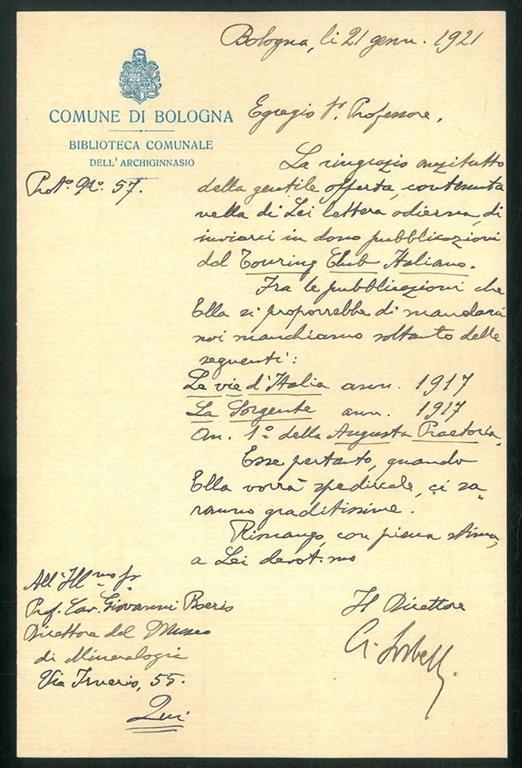 Bologna, li 21 genn. 1921
COMUNE DI BOLOGNA
BIBLIOTECA COMUNALE
DELL'ARCHIGINNASIO
Prot.° N.° 57.
Egregio Sr. Professore,
La ringrazio anzitutto
della gentile offerta, contenuta
nella di Lei lettera odierna, di
inviarci in dono pubblicazioni
del Touring Club Italiano.
Fra le pubblicazioni che
Ella si proporrebbe di mandarci
noi manchiamo soltanto delle
seguenti:
Le vie d'Italia ann. 1917
La Sorgente ann. 1917
An. 1° della Augusta Praetoria.
Esse pertanto, quando
Ella vorrà spedircele, ci sa-
ranno graditissime.
Rimango, con piena stima,
a Lei devot.mo
Il Direttore
A. Sorbelli
All'Ill.mo Sr.
Prof. Cav. Giovanni Boeris
Direttore del Museo
di Mineralogia
Via Irnerio, 55.
Qui